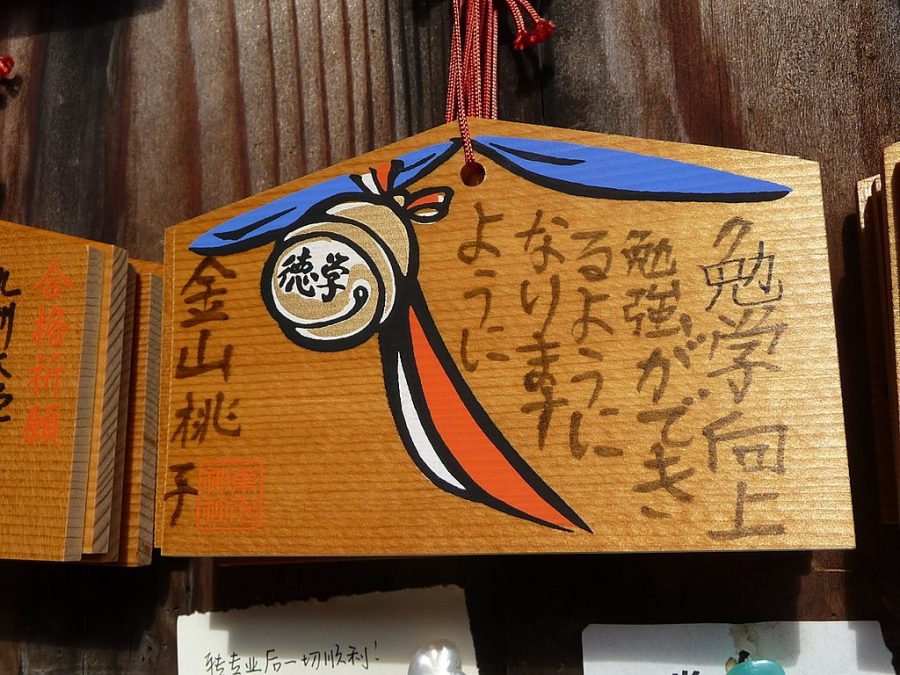 勉学向上
勉強ができ
るように
なります
ように
徳学
金山桃子
合格祈願
九州大
转专业后一切顺利!